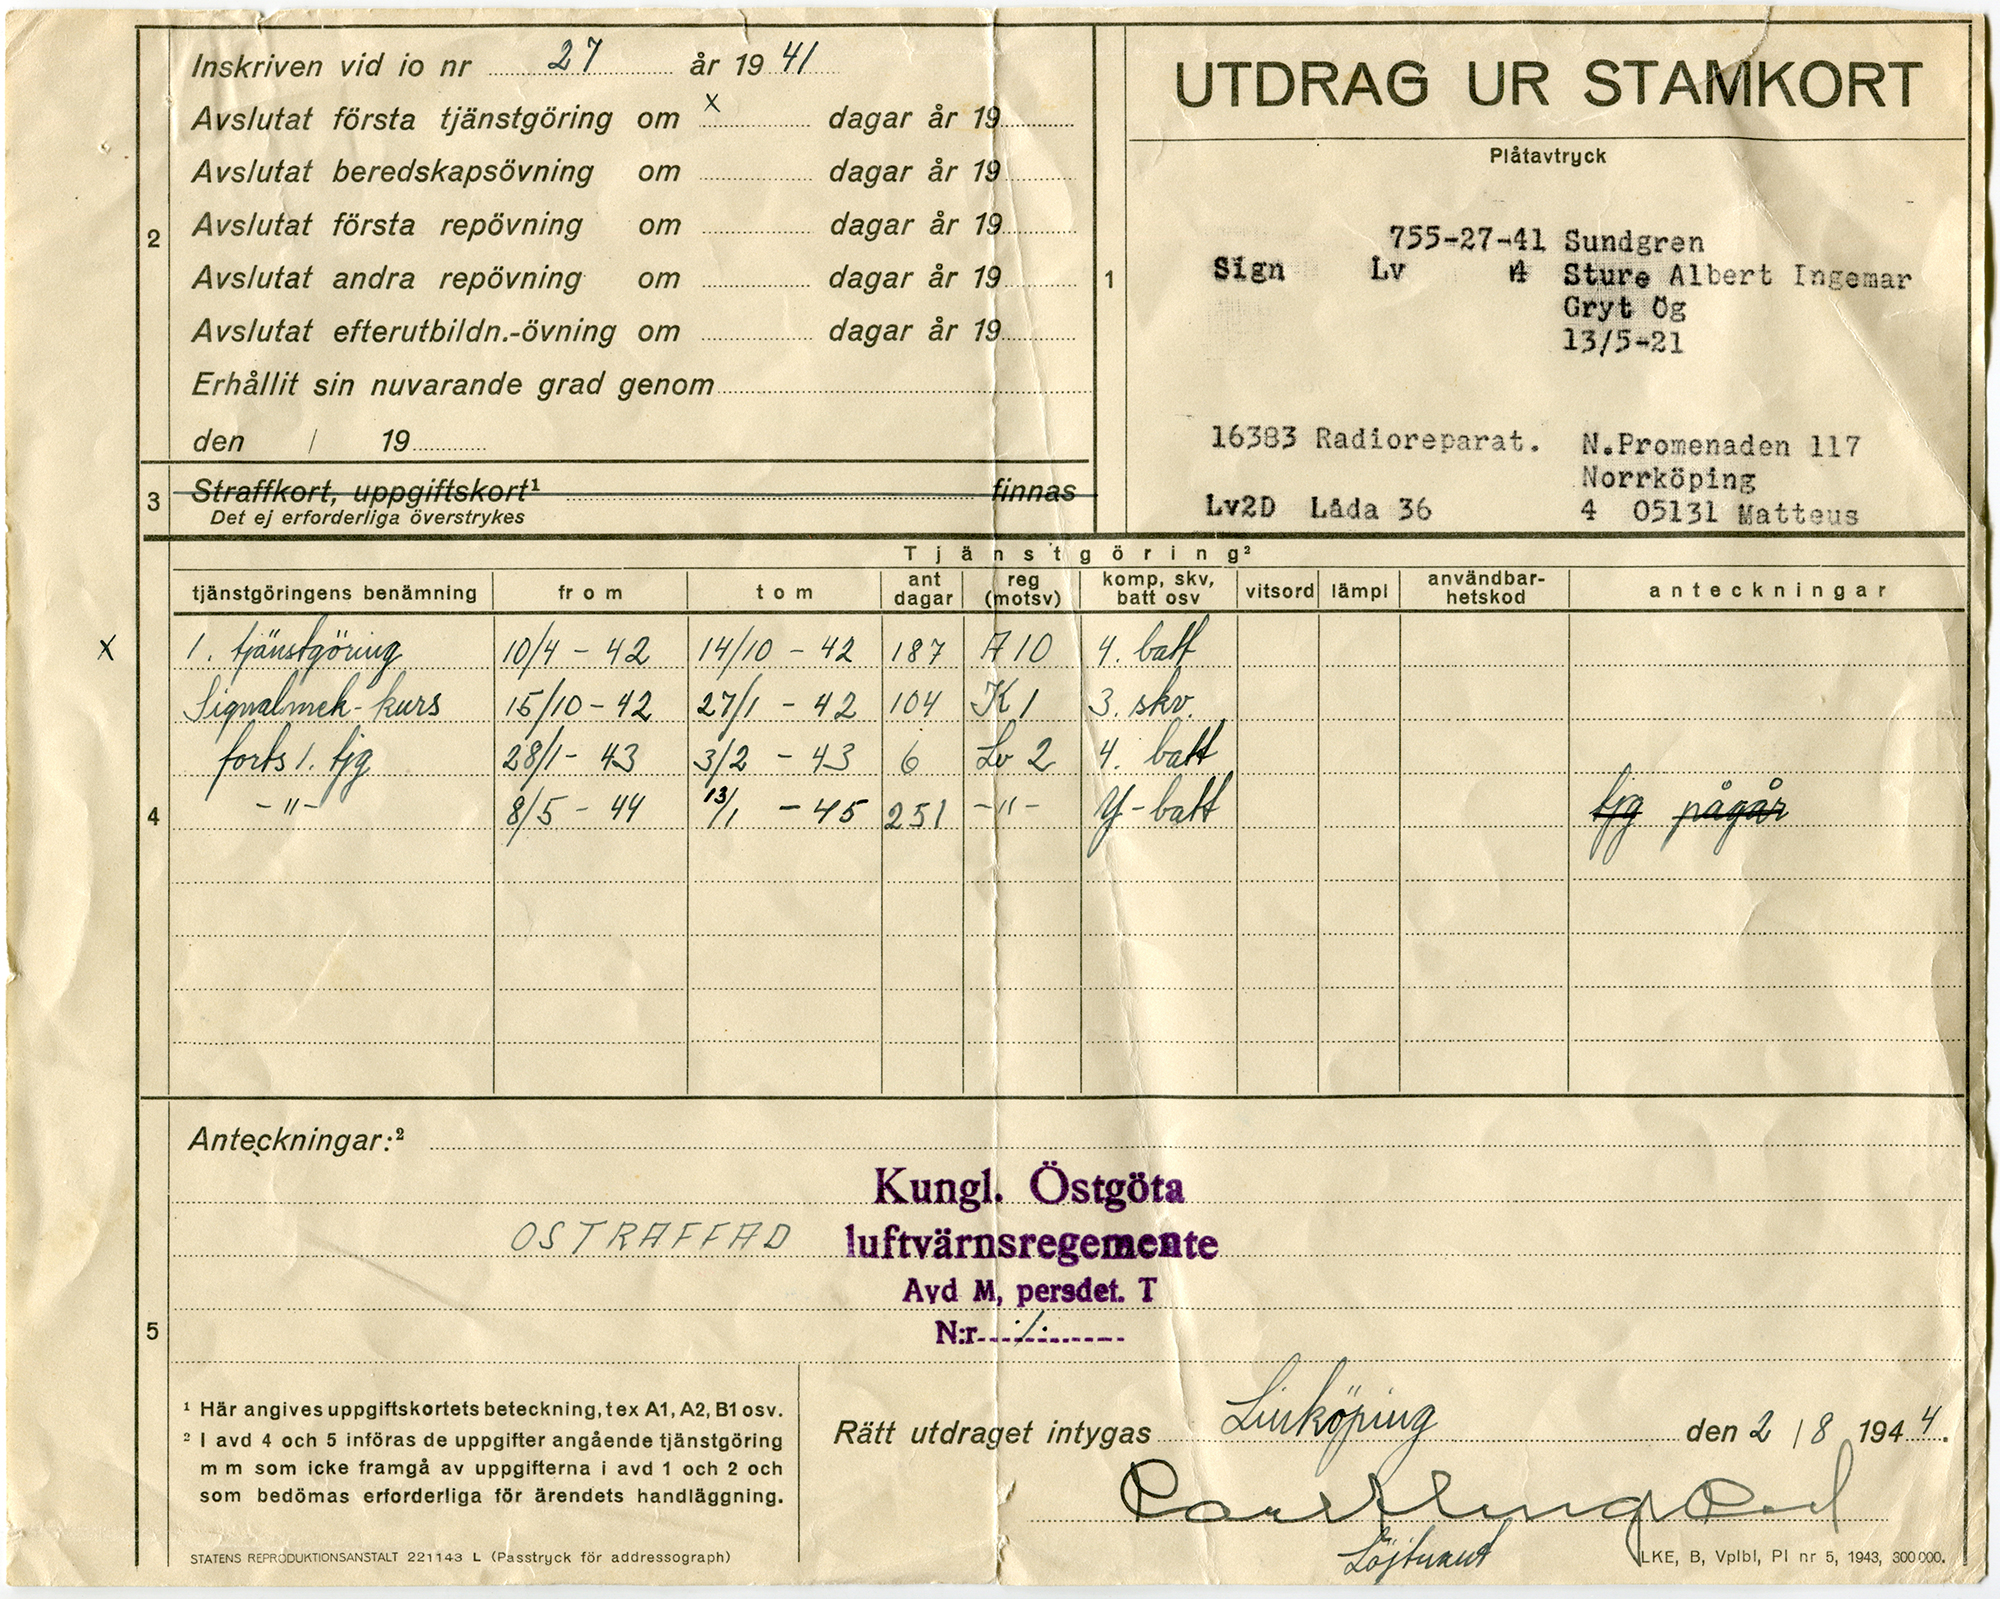 Inskriven vid io nr 27 år 19 41
Avslutat första tjänstgöring om x dagar år 19
Avslutat beredskapsövning om dagar år 19
2
Avslutat första repövning om dagar år 19
Avslutat andra repövning om dagar år 19
Avslutat efterutbildn.-övning om dagar år 19
Erhållit sin nuvarande grad genom
den / 19
3 Straffkort, uppgiftskort¹ finnas
Det ej erforderliga överstrykes
UTDRAG UR STAMKORT
Plåtavtryck
755-27-41 Sundgren
1 Sign Lv 4 Sture Albert Ingemar
Gryt Ög
13/5-21
16383 Radioreparat. N.Promenaden 117
Norrköping
Lv2D Låda 36 4 05131 Matteus
Tjänstgöring²
tjänstgöringens benämning from tom ant dagar reg (motsv) komp, skv, batt osv vitsord lämpl användbar-hetskod anteckningar
x 1. tjänstgöring 10/4 - 42 14/10 - 42 187 A 10 4. batt
Signalmek-kurs 15/10 - 42 27/1 - 42 104 K 1 3. skv.
forts 1. tjg 28/1 - 43 3/2 - 43 6 Lv 2 4. batt
4 -"- 8/5 - 44 13/1 - 45 251 -"- Y-batt tjg pågår
Anteckningar:²
Kungl. Östgöta
OSTRAFFAD luftvärnsregemente
Avd M, persdet. T
5 N:r
¹ Här angives uppgiftskortets beteckning, t ex A1, A2, B1 osv.
² I avd 4 och 5 införas de uppgifter angående tjänstgöring
m m som icke framgå av uppgifterna i avd 1 och 2 och
som bedömas erforderliga för ärendets handläggning.
Rätt utdraget intygas Linköping den 2/8 1944.
Löjtnant
STATENS REPRODUKTIONSANSTALT 221143 L (Passtryck för addressograph)
LKE, B, Vplbl, Pl nr 5, 1943, 300 000.